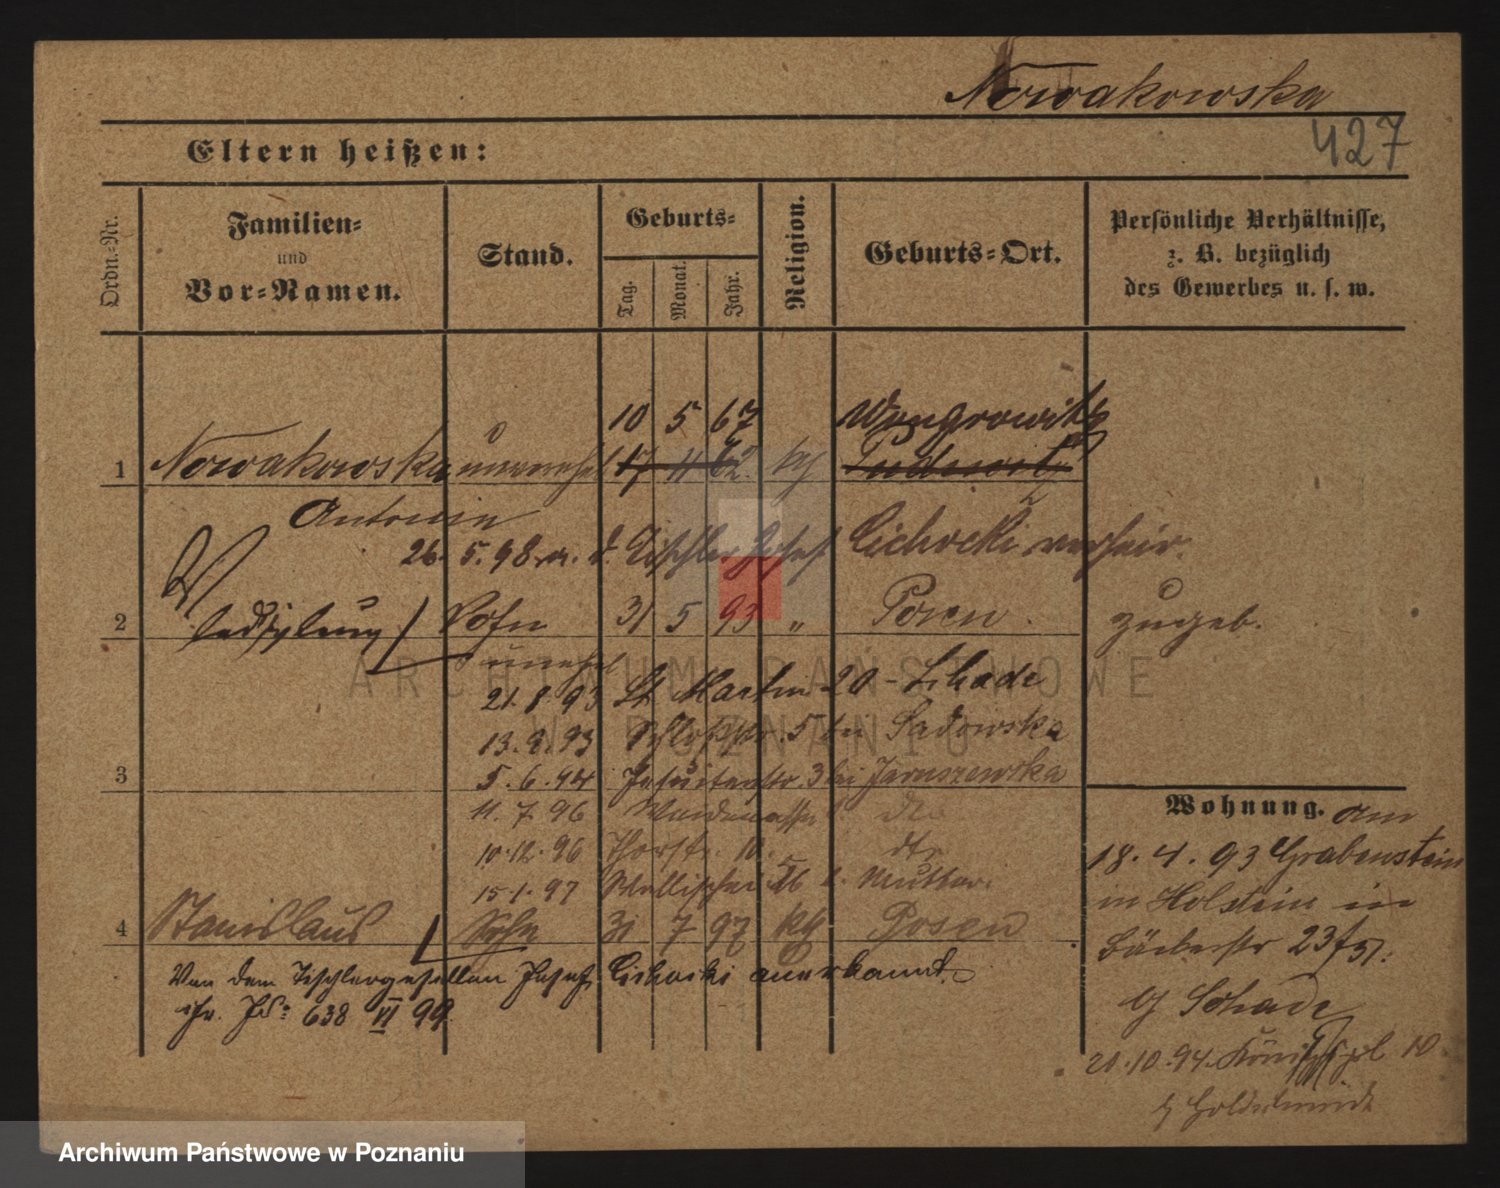 Nowakowska
427
Eltern heißen:
Ordn.-Nr.
Familien-
und
Vor-Namen.
Stand.
Geburts-
Tag.
Monat.
Jahr.
Religion.
Geburts-Ort.
Persönliche Verhältnisse,
z. B. bezüglich
des Gewerbes u. s. w.
10 5 67 Wongrowitz
1 Nowakowska unverehel 17 11 62. kg Pudewitz
Antonin
26. 5. 98. m. d. Tischler Josef Cichocki verheir.
2 Sohn 31 5 93 " Posen. zugeb.
unehel
21. 8. 93 St Martin 20 - Schade
13. 9. 93 5 bei Sadowska
3 5. 6. 94 Jesuitenstr. 3 bei Jaruszewska
11. 7. 96
10. 12. 96 Thorstr. 10.
15. 1. 97 Wallischei Mutter.
4 Stanislaus Sohn 31 7 97 kg Posen
Von dem Tischlergesellen Josef Cichocki anerkannt.
638 VI 99.
Wohnung. am
18. 4. 93 Grabenstein
in Holstein in
Bäckerstr 23
Schade
20. 10. 94. Königspl 10.
ARCHIWUM PAŃSTWOWE
W POZNANIU
Archiwum Państwowe w Poznaniu